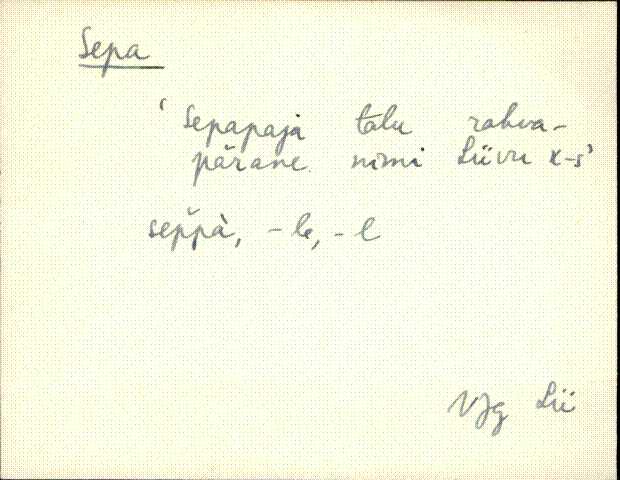 Sepa
‘Sepapaja talu rahva-
pärane nimi Liivu k-s’
sep̆pà, -le, -l
VJg Lii